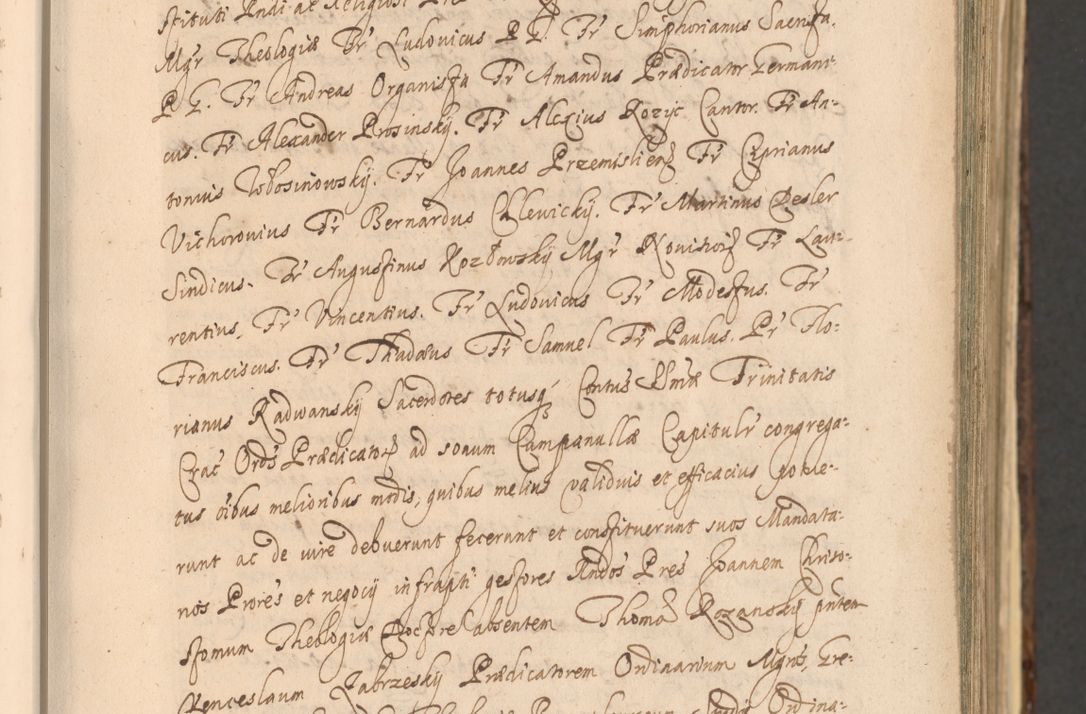 stituti Rndi ac Religiosi
Mgr Theologiæ Fr Ludovicus P. G. Fr Simphorianus Saensa.
P G. Fr Andreas Organista Fr Amandus Prædicator Germani-
cus. Fr Alexander Prosinskÿ. Fr Alexius Rozÿc Cantor. Fr An-
tonius Wosinowskÿ. Fr Joannes Przemislieñ Fr Cÿprianus
Vichorovius Fr Bernardus Chlewickÿ. Fr Martinus Desler
Sindicus. Fr Augustinus Kozłowskÿ Mgr Novitior Fr Lau-
rentius. Fr Vincentius. Fr Ludovicus Fr Modestus. Fr
Franciscus. Fr Thadæus Fr Samuel Fr Paulus. Pr Flo-
rianus Radwanskÿ Sacerdotes totusq Contus SSmæ Trinitatis
Crac Ords Prædicator ad sonum Campanullæ Capitulr congrega-
tus oibus melioribus modis, quibus melius validius et efficacius potue-
runt ac de iure debuerunt fecerunt et constituerunt suos Mandata-
rios Prores et negocÿ infrapti gestores Andos Pres Joannem Christo-
stomum Theologiæ Doctore absentem Thomã Rozanskÿ pntem
Venceslaum Zabrzeskÿ Prædicatorem Ordinarium Mgros, Gre-
Ordina-